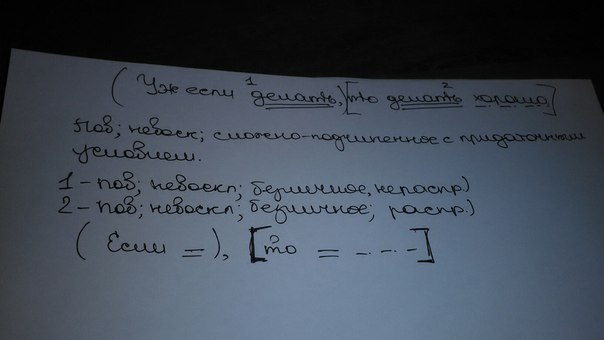 1 2
(Уже если делать,)[то делать хорошо]
Пов; невоск; сложно-подчиненное с придаточным
условием.
1 - пов; невоскл; безличное, нераспр.)
2 - пов; невоскл; безличное; распр.)
(Если =), [то = _._._]